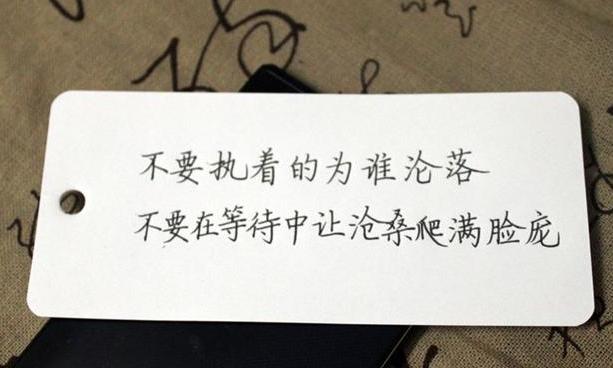 不要执着的为谁沦落
不要在等待中让沧桑爬满脸庞